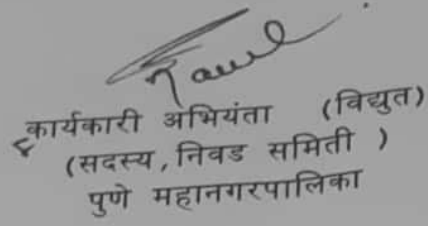 कार्यकारी अभियंता (विद्युत)
(सदस्य, निवड समिती )
पुणे महानगरपालिका